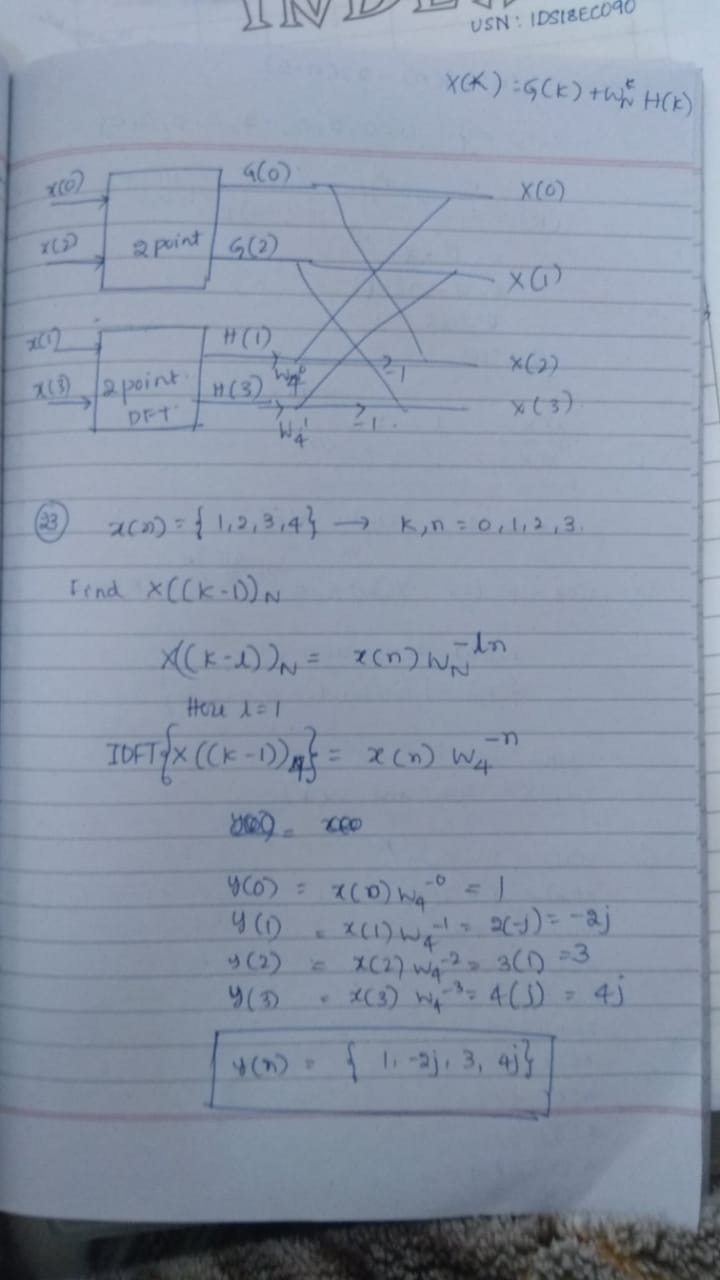 INDE
USN: 1DS18EC090
X(K) = G(K) + W_N^K H(K)
x(0) G(0) X(0)
x(2) 2 point G(2) X(1)
x(1) H(1) W_4^0 -1 X(2)
x(3) 2 point DFT H(3) W_4^1 -1 X(3)
23 x(n) = { 1, 2, 3, 4 } → K, n = 0, 1, 2, 3.
Find X((K-1))_N
X((K-l))_N = x(n) W_N^-ln
Here l = 1
IDFT{X((K-1))_4} = x(n) W_4^-n
y(0) = x(0) W_4^-0 = 1
y(1) = x(1) W_4^-1 = 2(-j) = -2j
y(2) = x(2) W_4^-2 = 3(1) = 3
y(3) = x(3) W_4^-3 = 4(j) = 4j
y(n) = { 1, -2j, 3, 4j}